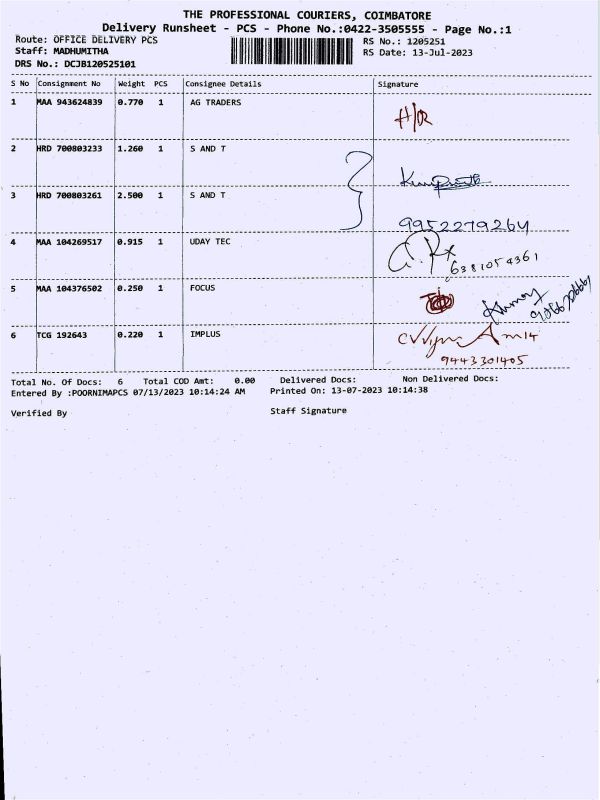 THE PROFESSIONAL COURIERS, COIMBATORE
Delivery Runsheet - PCS - Phone No.:0422-3505555 - Page No.:1
Route: OFFICE DELIVERY PCS
RS No.: 1205251
Staff: MADHUMITHA
RS Date: 13-Jul-2023
DRS No.: DCJB120525101
S No Consignment No Weight PCS Consignee Details Signature
1 MAA 943624839 0.770 1 AG TRADERS
H/R
2 HRD 700803233 1.260 1 S AND T
3 HRD 700803261 2.500 1 S AND T
9952279264
4 MAA 104269517 0.915 1 UDAY TEC
6381054361
5 MAA 104376502 0.250 1 FOCUS
6 TCG 192643 0.220 1 IMPLUS
9443301405
Total No. Of Docs: 6 Total COD Amt: 0.00 Delivered Docs: Non Delivered Docs:
Entered By :POORNIMAPCS 07/13/2023 10:14:24 AM Printed On: 13-07-2023 10:14:38
Verified By Staff Signature